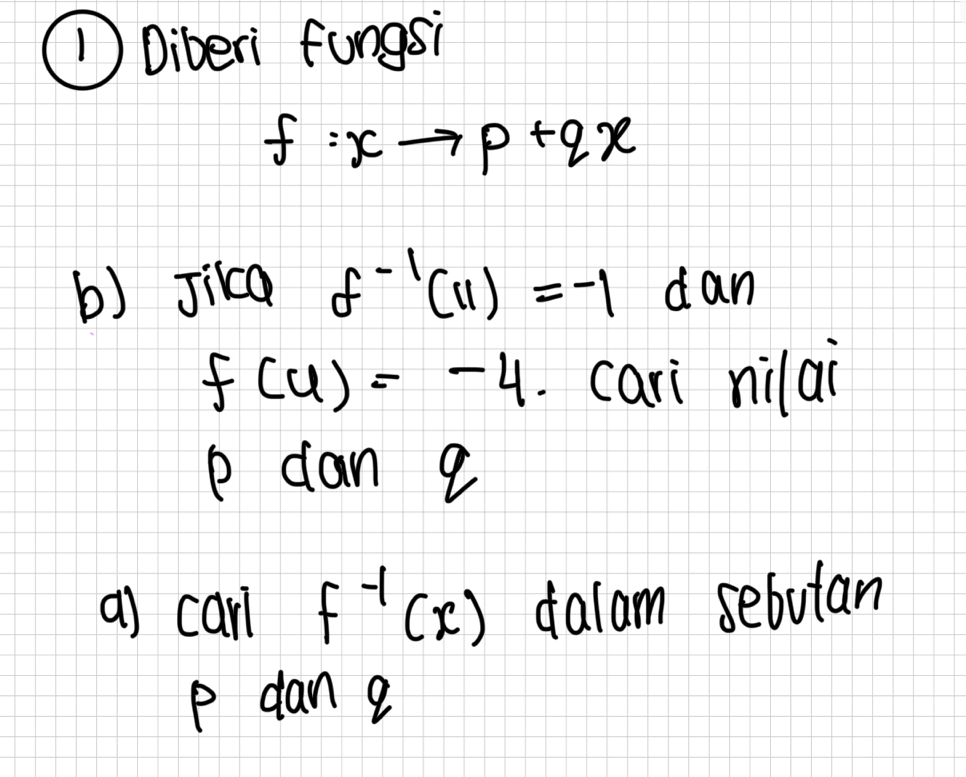 ① Diberi fungsi
f : x → p + qx
b) Jika f⁻¹(11) = -1 dan
f(4) = -4. cari nilai
p dan q
a) cari f⁻¹(x) dalam sebutan
p dan q